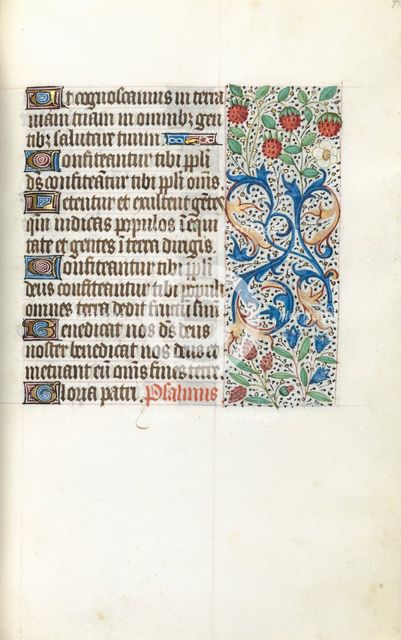 Ut cognoscamus in terra
uiam tuam in omnibz gen
tibz salutare tuum
Confiteantur tibi ppli
ds confiteantur tibi ppli oms.
Letentur et exultent gētes
qm iudicas populos ī equi
tate et gentes ī terra dirigis.
Confiteantur tibi ppli
deus confiteantur tibi populi
omnes terra dedit fructū suū
Benedicat nos ds deus
noster benedicat nos deus et
metuant eū oms fines terre.
Gloria patri. Psalmus